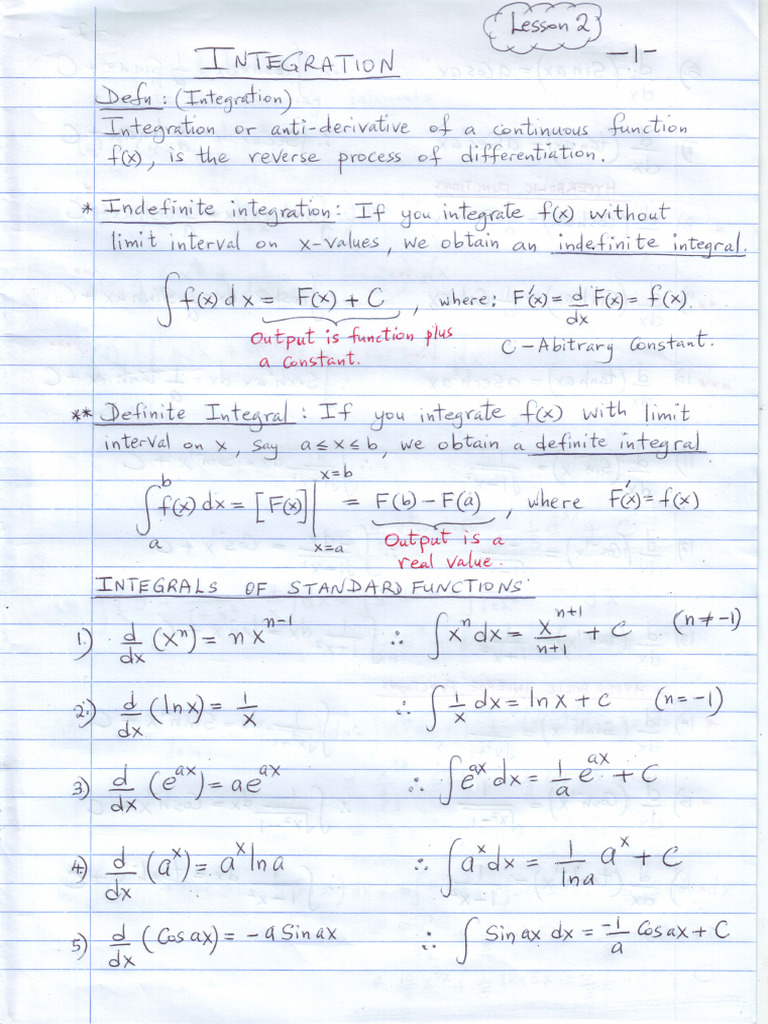 Lesson 2
-1-
INTEGRATION
Defn: (Integration)
Integration or anti-derivative of a continuous function
f(x), is the reverse process of differentiation.
* Indefinite integration: If you integrate f(x) without
limit interval on x-values, we obtain an indefinite integral.
∫f(x) dx = F(x) + C, where: F'(x) = d/dx F(x) = f(x).
Output is function plus
a constant.
C - Abitrary Constant.
** Definite Integral: If you integrate f(x) with limit
interval on x, say a ≤ x ≤ b, we obtain a definite integral
∫_a^b f(x) dx = [F(x)]|_{x=a}^{x=b} = F(b) - F(a), where F'(x) = f(x)
Output is a
real value.
INTEGRALS OF STANDARD FUNCTIONS
1) d/dx (x^n) = n x^{n-1} ∴ ∫x^n dx = x^{n+1}/n+1 + C (n ≠ -1)
2) d/dx (ln x) = 1/x ∴ ∫1/x dx = ln x + C (n = -1)
3) d/dx (e^{ax}) = a e^{ax} ∴ ∫e^{ax} dx = 1/a e^{ax} + C
4) d/dx (a^x) = a^x ln a ∴ ∫a^x dx = 1/ln a a^x + C
5) d/dx (Cos ax) = -a Sin ax ∴ ∫ Sin ax dx = -1/a Cos ax + C